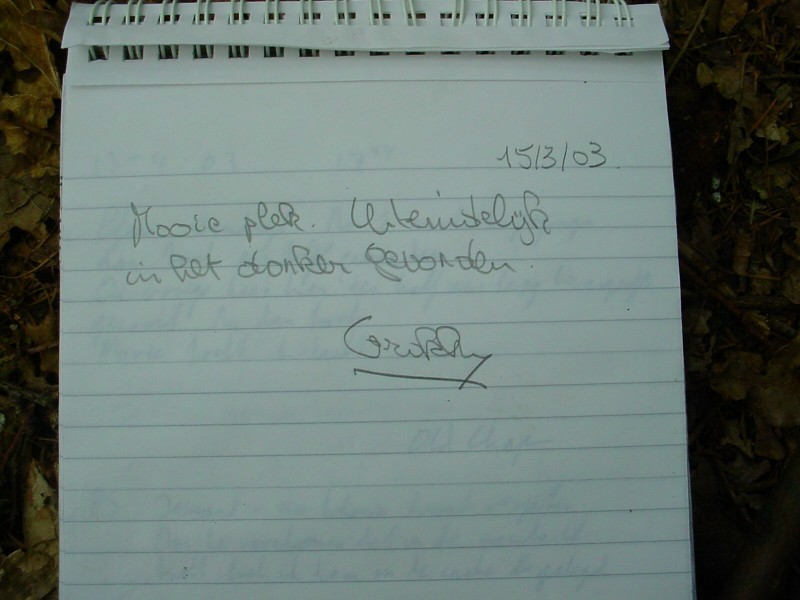 15/3/03
Mooie plek. Uiteindelijk
in het donker gevonden.